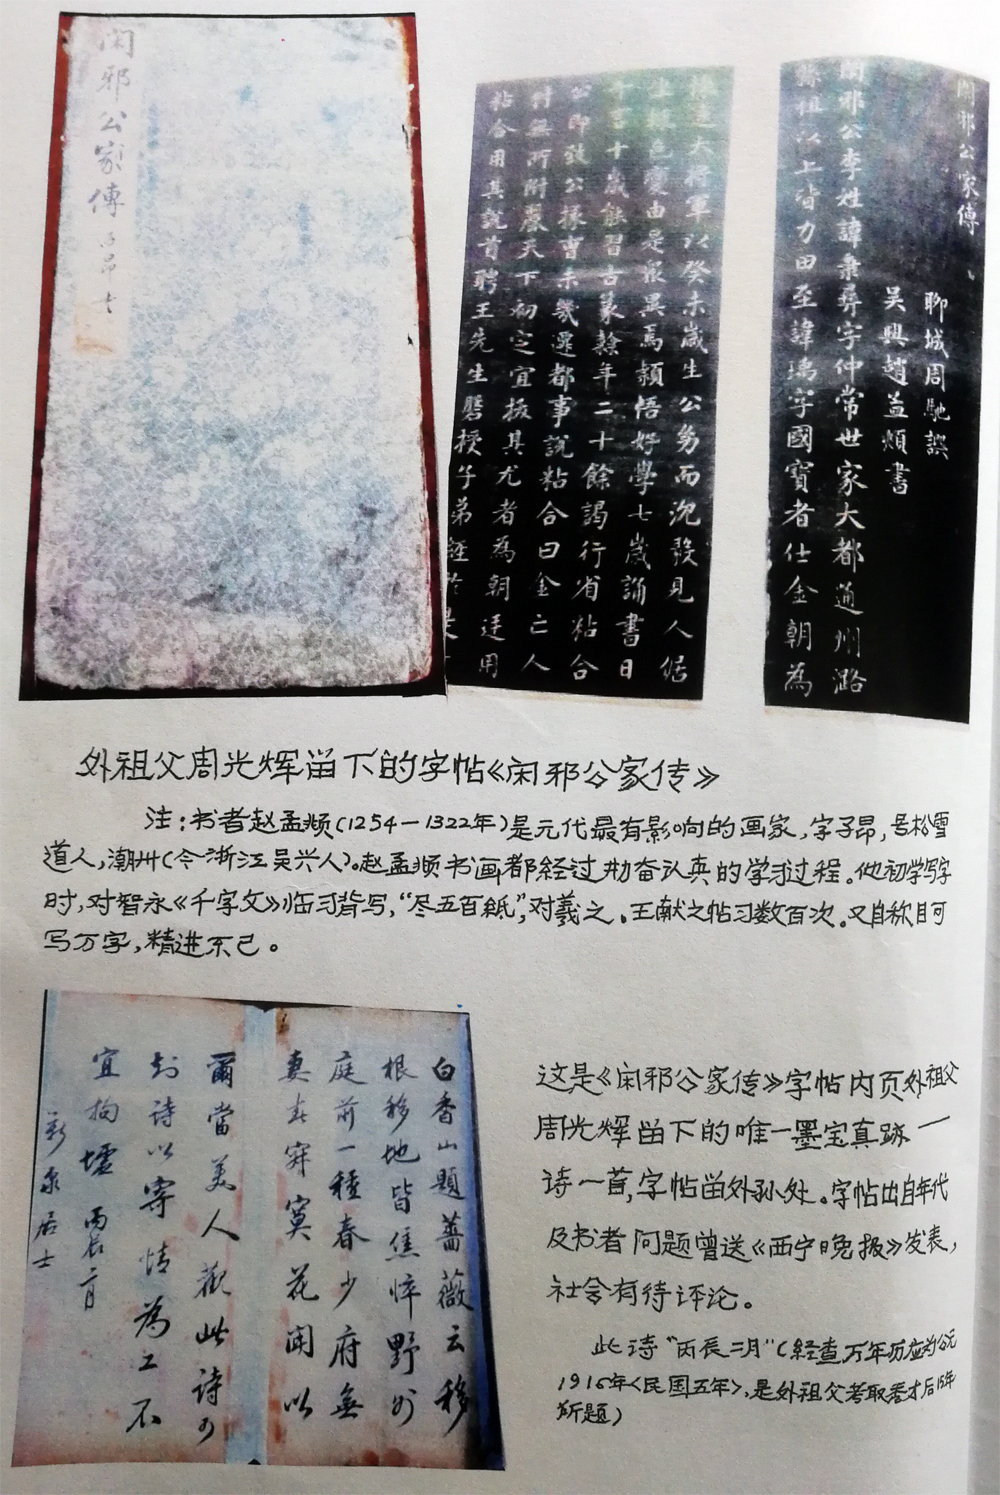 闲邪公家傳
子昂七
閑邪公家傳
聊城周馳譔
吴興趙孟頫書
閑邪公李姓諱秉彛字仲常世家大都通州潞
縣祖以上皆力田至諱瑀字國寳者仕金朝為
大將軍以癸未歲生公㓜而沉毅見人倨
色變由是衆異焉頴悟好學七歲誦書日
千言十歲餘習古篆隸年二十餘謁行省粘合
公即致公掾曹未幾遷都事説粘合曰金亡人
材無所附麗天下初定宜拔其尤者為朝廷用
粘合用其説首聘王先生磐授子弟經於是
外祖父周光辉畄下的字帖《闲邪公家传》
注：书者赵孟頫(1254—1322年)是元代最有影响的画家,字子昂,号松雪
道人,潮州(今浙江吴兴人)。赵孟頫书画都经过勤奋认真的学习过程。他初学写字
时,对智永《千字文》临习背写,“尽五百紙”,对羲之、王献之帖习数百次。又自称日可
写万字,精进不已。
白香山題薔薇云移
根移地皆焦悴野外
庭前一種春少府無
妻春寂寞花開以
爾當美人觀此詩可
刦詩以寄情為工不
宜拘墟 丙辰二月
新泉居士
这是《闲邪公家传》字帖内页外祖父
周光辉畄下的唯一墨宝真跡一
诗一首,字帖畄外孙处。字帖出自年代
及书者问题曾送《西宁晚报》发表,
社会有待评论。
此诗“丙辰二月”(经查万年历应为公元
1916年<民国五年>,是外祖父考取秀才后15年
所题)